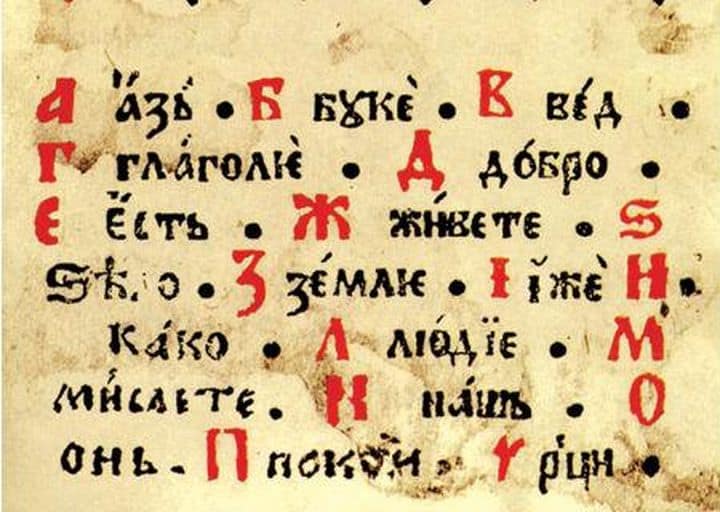 А А҆́зъ • Б бꙋкѐ • В вѣ́д •
Г глаго́лѥ • Д до́бро •
Е Е҆́сть • Ж жи́вете • Ѕ
Ѕѣ.ло • З зе́млѥ • І і҆̀жѐ Н •
ка́ко • Л лю́дїе • М
ми́слете • Н на́шь • О
онь • П поко́и • Ч рци •